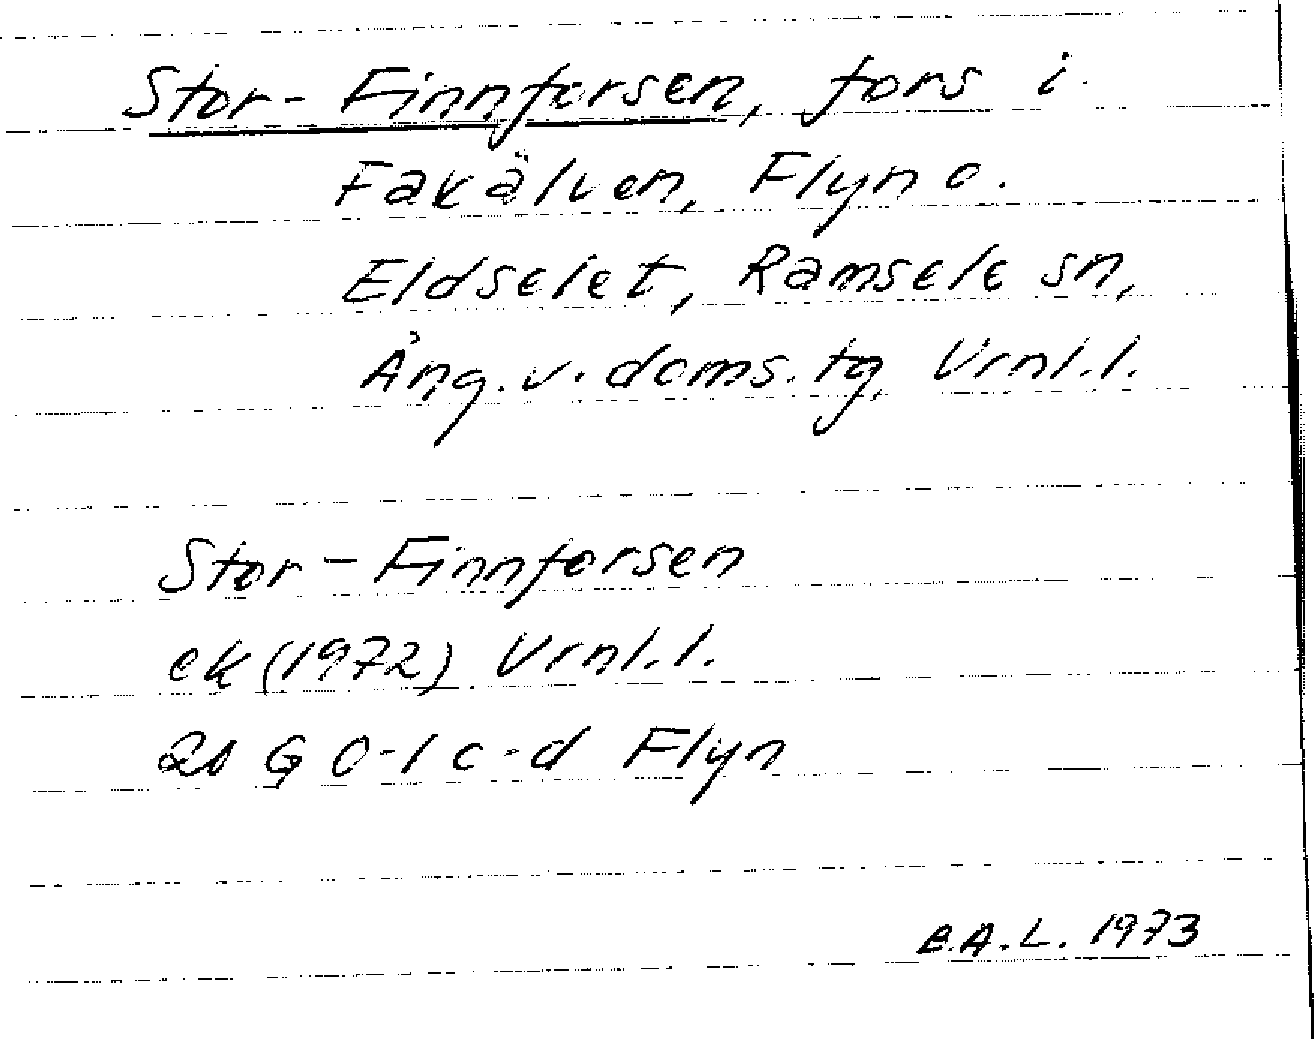 Stor-Finnforsen, fors i
Faxälven, Flyn o.
Eldselet, Ramsele sn,
Ång.v.doms.tg, Vrnl.l.
Stor-Finnforsen
ek(1972) Vrnl.l.
20 G 0-1 c-d Flyn
E.A.L. 1973